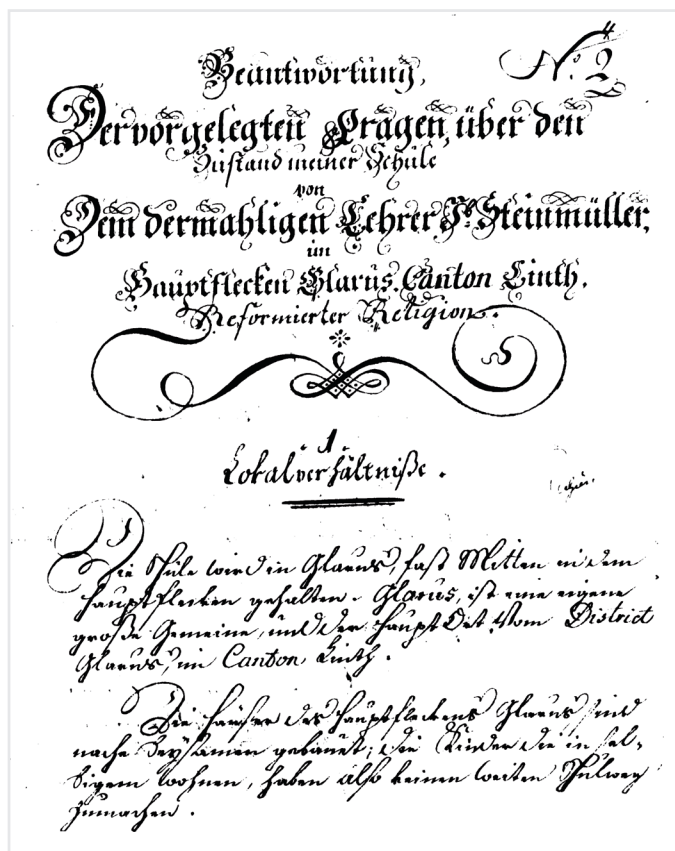 Beantwortung,
No. 2
Der vorgelegten Fragen, über den
Zustand meiner Schule
von
Dem dermahligen Lehrer Js. Steinmüller,
im
Hauptflecken Glarus. Canton Linth.
Reformierter Religion.
1
Lokalverhältniße.
Die Schule wird in Glarus, fast Mitten in dem
Hauptflecken gehalten. Glarus, ist eine eigene
große Gemeine, und der Haupt Ort Vom District
Glarus, im Canton Linth.
Die Häuser des Hauptfleckens Glarus sind
nache beysamen gebauet; die Kinder die in sel-
bigem wohnen, haben also keinen weiten Schulweg
zumachen.